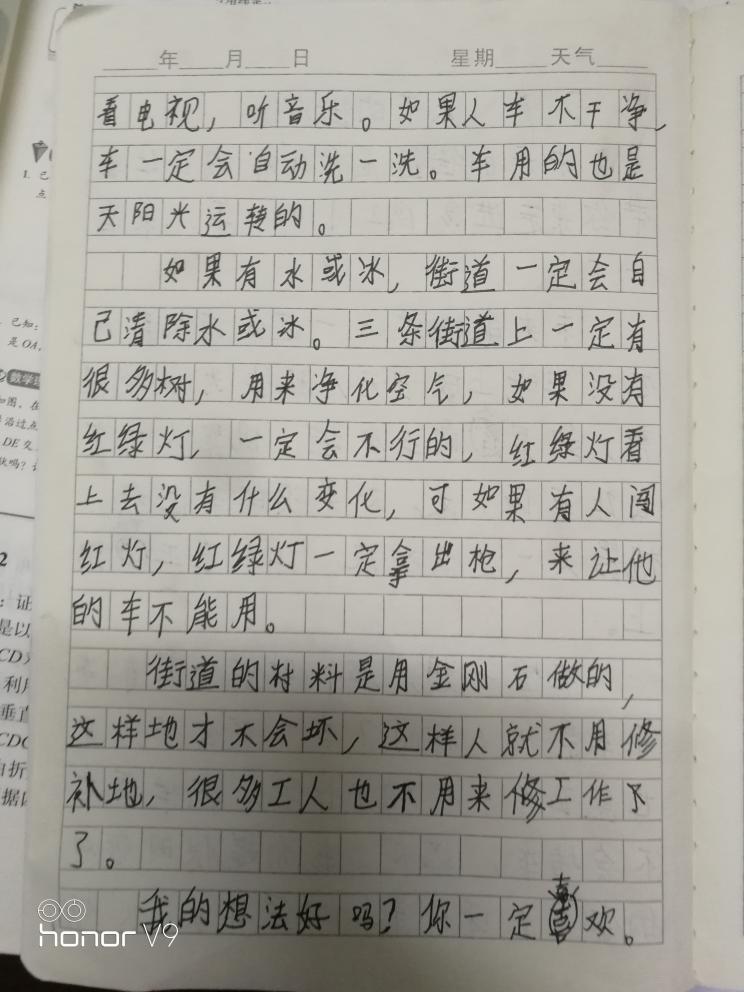 年 月 日 星期 天气
看电视，听音乐。如果人车不干净，
车一定会自动洗一洗。车用的也是
天阳光运转的。
如果有水或冰，街道一定会自
己清除水或冰。三条街道上一定有
很多树，用来净化空气，如果没有
红绿灯，一定会不行的，红绿灯看
上去没有什么变化，可如果有人闯
红灯，红绿灯一定拿出枪，来让他
的车不能用。
街道的材料是用金刚石做的，
这样地才不会坏，这样人就不用修
补地，很多工人也不用来修工作下
了。
我的想法好吗？你一定喜欢。
honor V9
1. 已
点
已知：
是OA，
数学
如图，在
沿过点
DE交
2
：证
是以
CD
利用
垂直
CDC
折
据